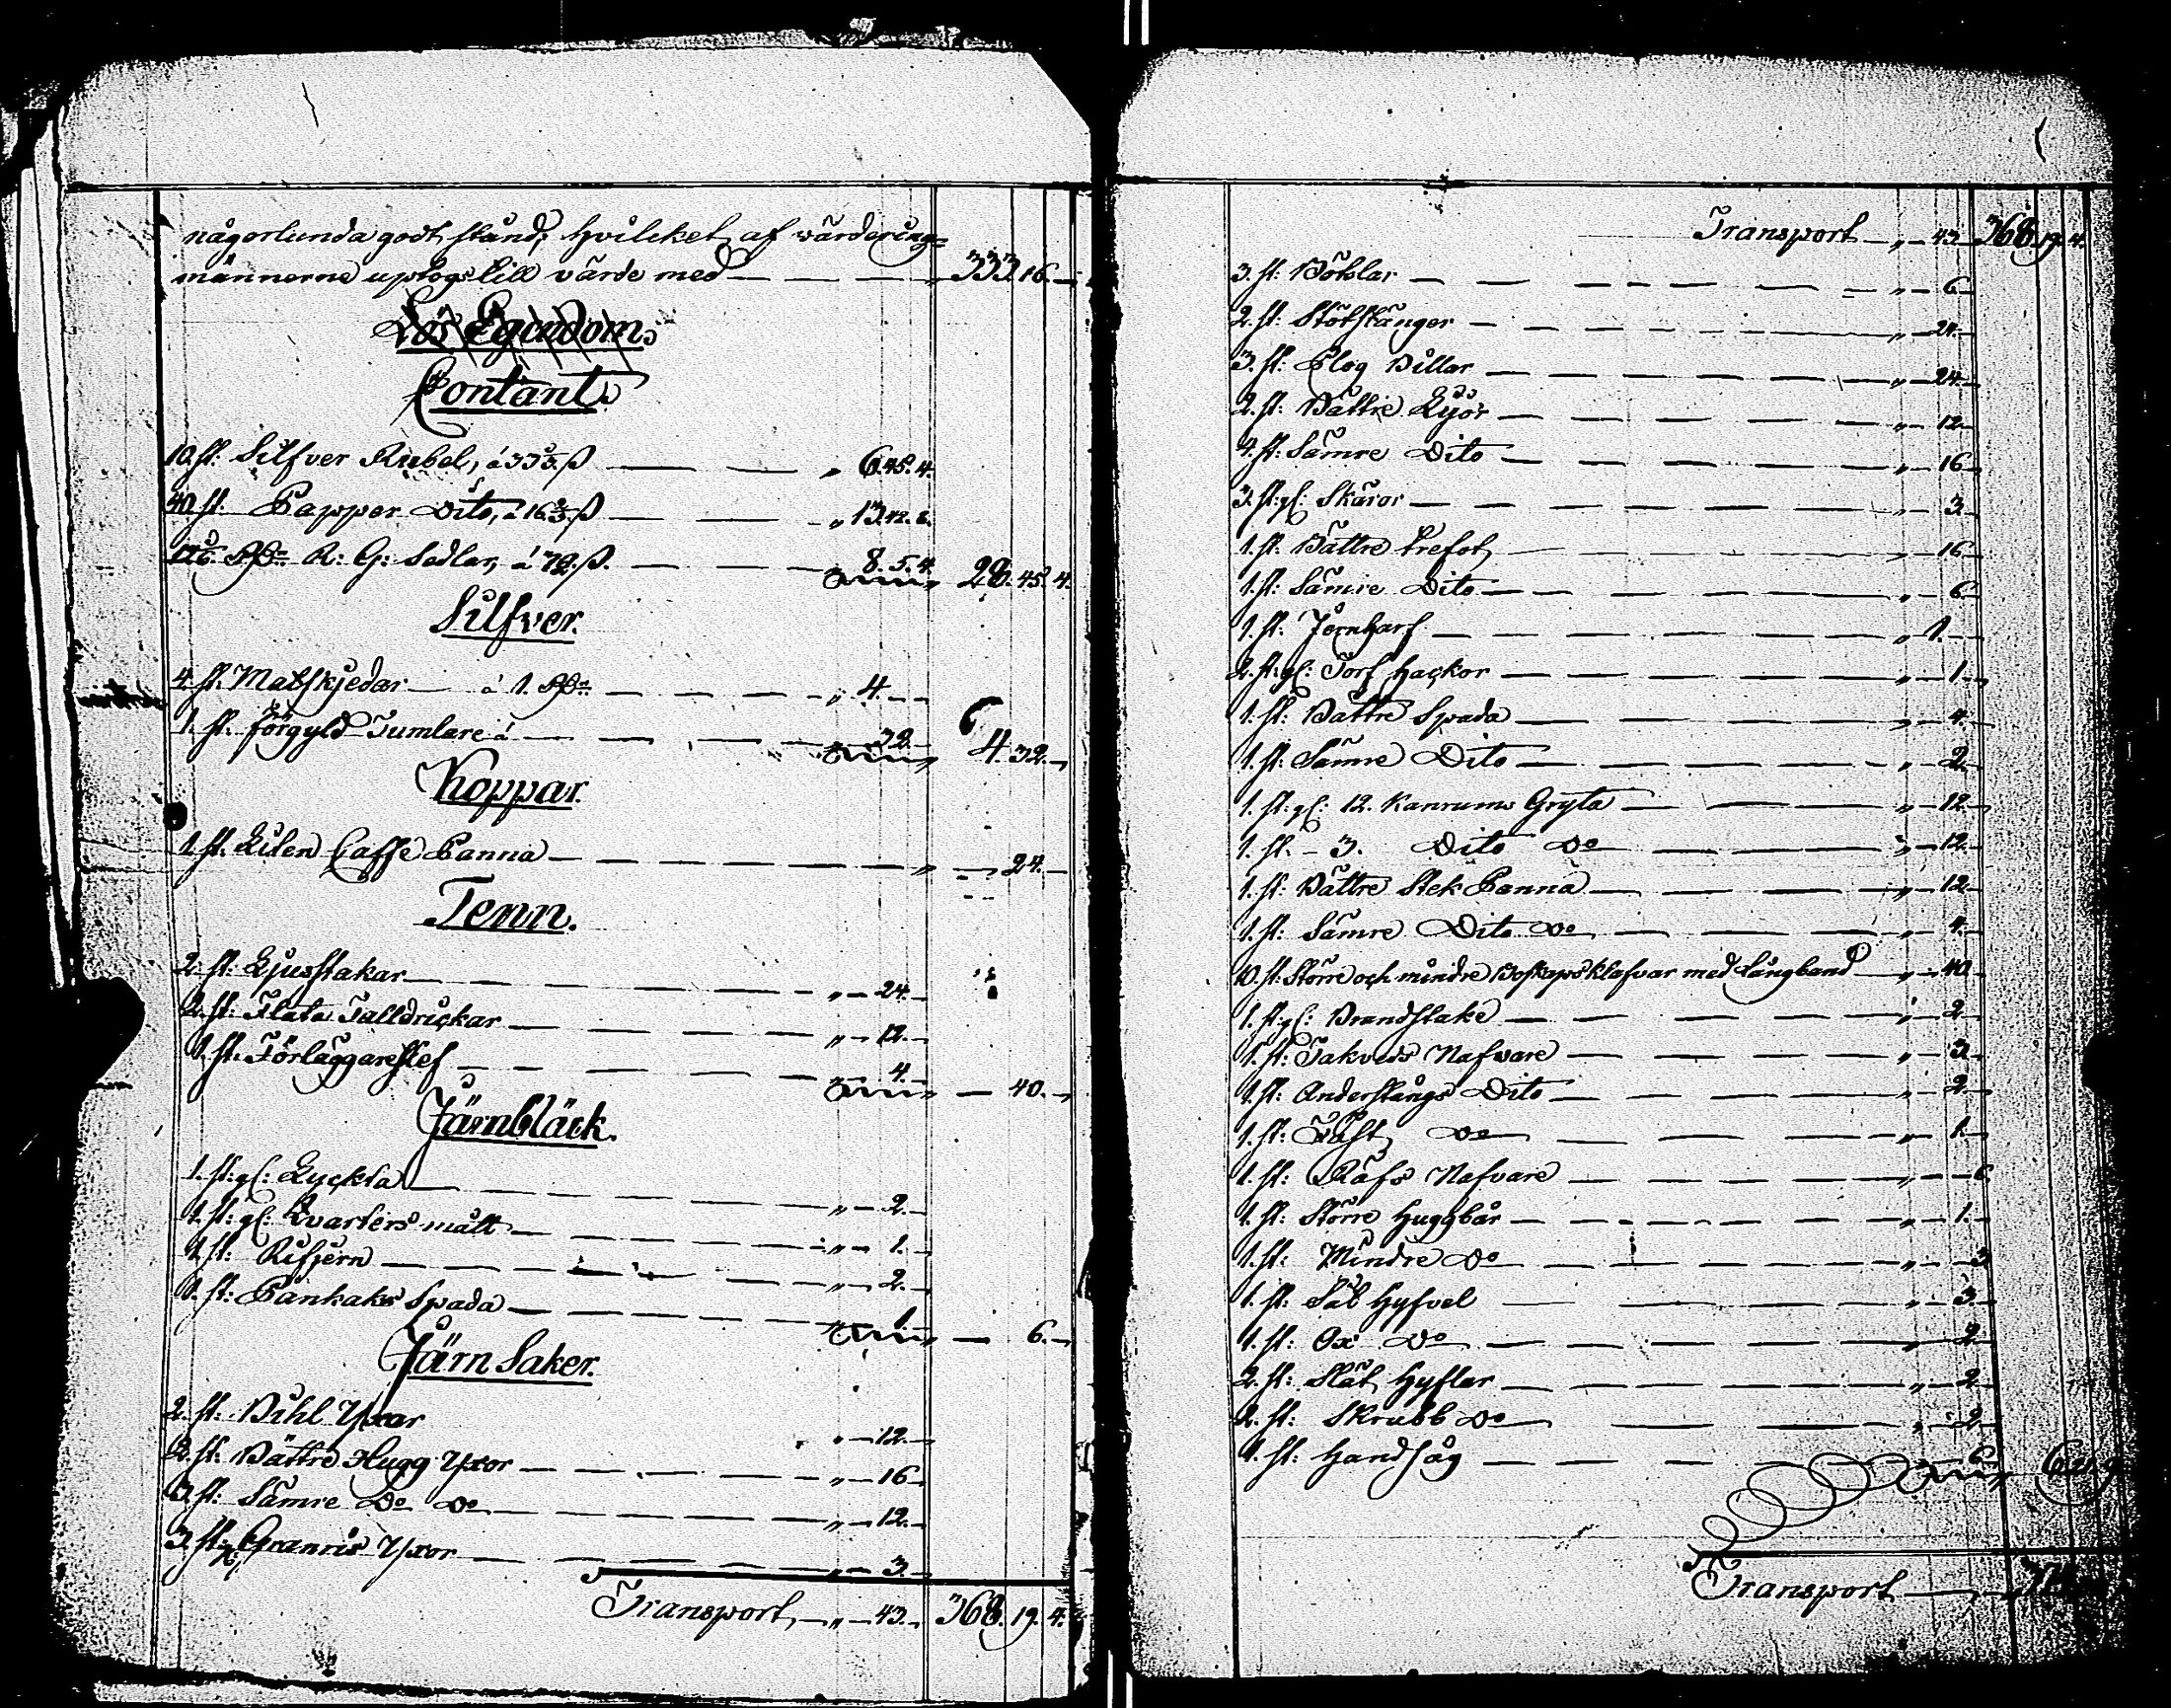 någorlunda godt stånd, hvilcket af wärderings=
männerne uptogs till värde med — — — „ 333. 16. —
Lös Egendom.
Contant.
10. st. Silfver Rubel, á 33 ⅓ ß — — — „ 6. 45. 4.
40. st: Papper Dito, á 16 ⅔ ß — — — „ 13. 42. 8.
R: G: Sedlar, á ß. — — 8. 5. 4.
Sum „ 28. 45. 4.
Silfver.
4. st. Matskjedar — á 1. Rdr — — — „ 4. — —
1. st. förgyld Tumlare á — — — 32. —
Sum „ 4. 32. —
Koppar.
1. st. Liten Caffe Panna — — — — „ — 24. —
Tenn.
2. st: Ljusstakar — — — „ — 24. —
2. st: Flata Talldrickar — — — „ — 12. —
1. st. Förläggareslef — — — 4. —
Sum „ — 40. —
Järnbläck.
1. st: gl: Lyckta — — — „ — 2. —
1. st: gl: Qvarters mått — — — „ — 1. —
1. st: Rifjern — — — „ — 2. —
1. st: Pankaks Spada — — — 1. —
Sum „ — 6. —
Järn Saker.
2. st. Bihl Yxor „ — 12. —
2. st. Bättre Hugg Yxor — — — „ — 16 —
3. st: Sämre Do Do — — — „ — 12. —
3. st: gl: Granris Yxor — — — „ — 3. —
Transport, — „ — 43. — 368. 19. 4.
Transport — „ — 43 — 368. 19. 4.
3. st: — — — „ — 6 —
2. st: Stötstänger — — — „ — 24. —
3. st: Plog Billar — — — „ — 24. —
2. st: Bättre Lijor — — — „ — 12. —
4. st: Sämre Dito — — — „ — 16 —
3. st: gl: Skäror — — — „ — 3. —
1. st. Bättre trefot, — — — „ — 16 —
1. st: Sämre Dito — — — „ — 6. —
1. st: Jernharf — — — „ 1. —
2. st: gl: Torf hackor — — — „ — 1. —
1. st: Bättre Spada — — — „ — 4. —
1. st: Sämre Dito — — — „ — 2. —
1. st: gl: 12. Kanrums Gryta — — — „ — 12. —
1. st. — 3. Dito Do — — — „ — 12. —
1. st: Bättre Stek Panna — — — „ — 12. —
1. st: Sämre Dito Do — — — „ — 4. —
10. st: Större och mindre Boskapsklafvar med Långband — „ — 40. —
1. st: gl: Brandstake — — — „ — 2. —
1. st: Takveds Nafvare — — — „ — 3. —
1. st: Anderstångs Dito — — — „ — 2. —
1. st: Do — — — „ — 1. —
1. st: Räfs Nafvare — — — „ — — 6.
1. st: Större huggbår — — — „ — 1. —
1. st: Mindre Do — — — „ — — 3
1. st: Hyfvel — — — „ — 3. —
1. st: Ox Do — — — „ — 2. —
2. st: Slät Hyflar — — — „ — 2. —
2. st: Skrubb Do — — — „ — 2. —
1. st: Handsåg — — — 6. —
Sum 6. 21. 9.
Transport — „